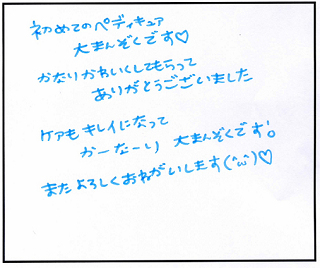 初めてのペディキュア
大まんぞくです♡
かなりかわいくしてもらって
ありがとうございました
ケアもキレイになって
かーなーり 大まんぞくです!。
またよろしくおねがいします(^ω^)♡